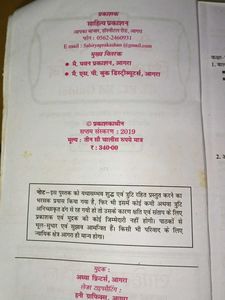 प्रकाशक
साहित्य प्रकाशन
आपका बाजार, हॉस्पीटल रोड, आगरा
फोन : 0562-2460931
E mail : Sahityaprakashan@gmail.com
मुख्य विक्रेता
● मै. पवन प्रकाशन, आगरा
● मै. एस. पी. बुक डिस्ट्रीब्यूटर्स, आगरा
© प्रकाशकाधीन
सप्तम संस्करण : 2019
मूल्य : तीन सौ चालीस रुपये मात्र
₹ 340·00
नोट—इस पुस्तक को यथासम्भव शुद्ध एवं त्रुटि रहित प्रस्तुत करने का
भरसक प्रयास किया गया है, फिर भी इसमें कोई कमी अथवा त्रुटि
अनिच्छाकृत ढंग से रह गयी हो तो उसके कारण क्षति एवं संताप के लिए
प्रकाशक एवं मुद्रक की कोई जिम्मेदारी नहीं होगी। पाठकों से
भूल-सुधार एवं सुझाव आमन्त्रित हैं। किसी भी परिवाद के लिए
न्यायिक क्षेत्र आगरा ही मान्य होगा।
मुद्रक :
आगरा
लेजर टाइपसैटिंग :
आगरा